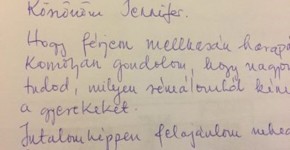 Köszönöm Jennifer.
Hogy férjem mellkasán harap
Komolyan gondolom, hogy nagyo
tudod, milyen rémálomból kím
a gyerekeket.
Jutalomképpen felajánlom nehe